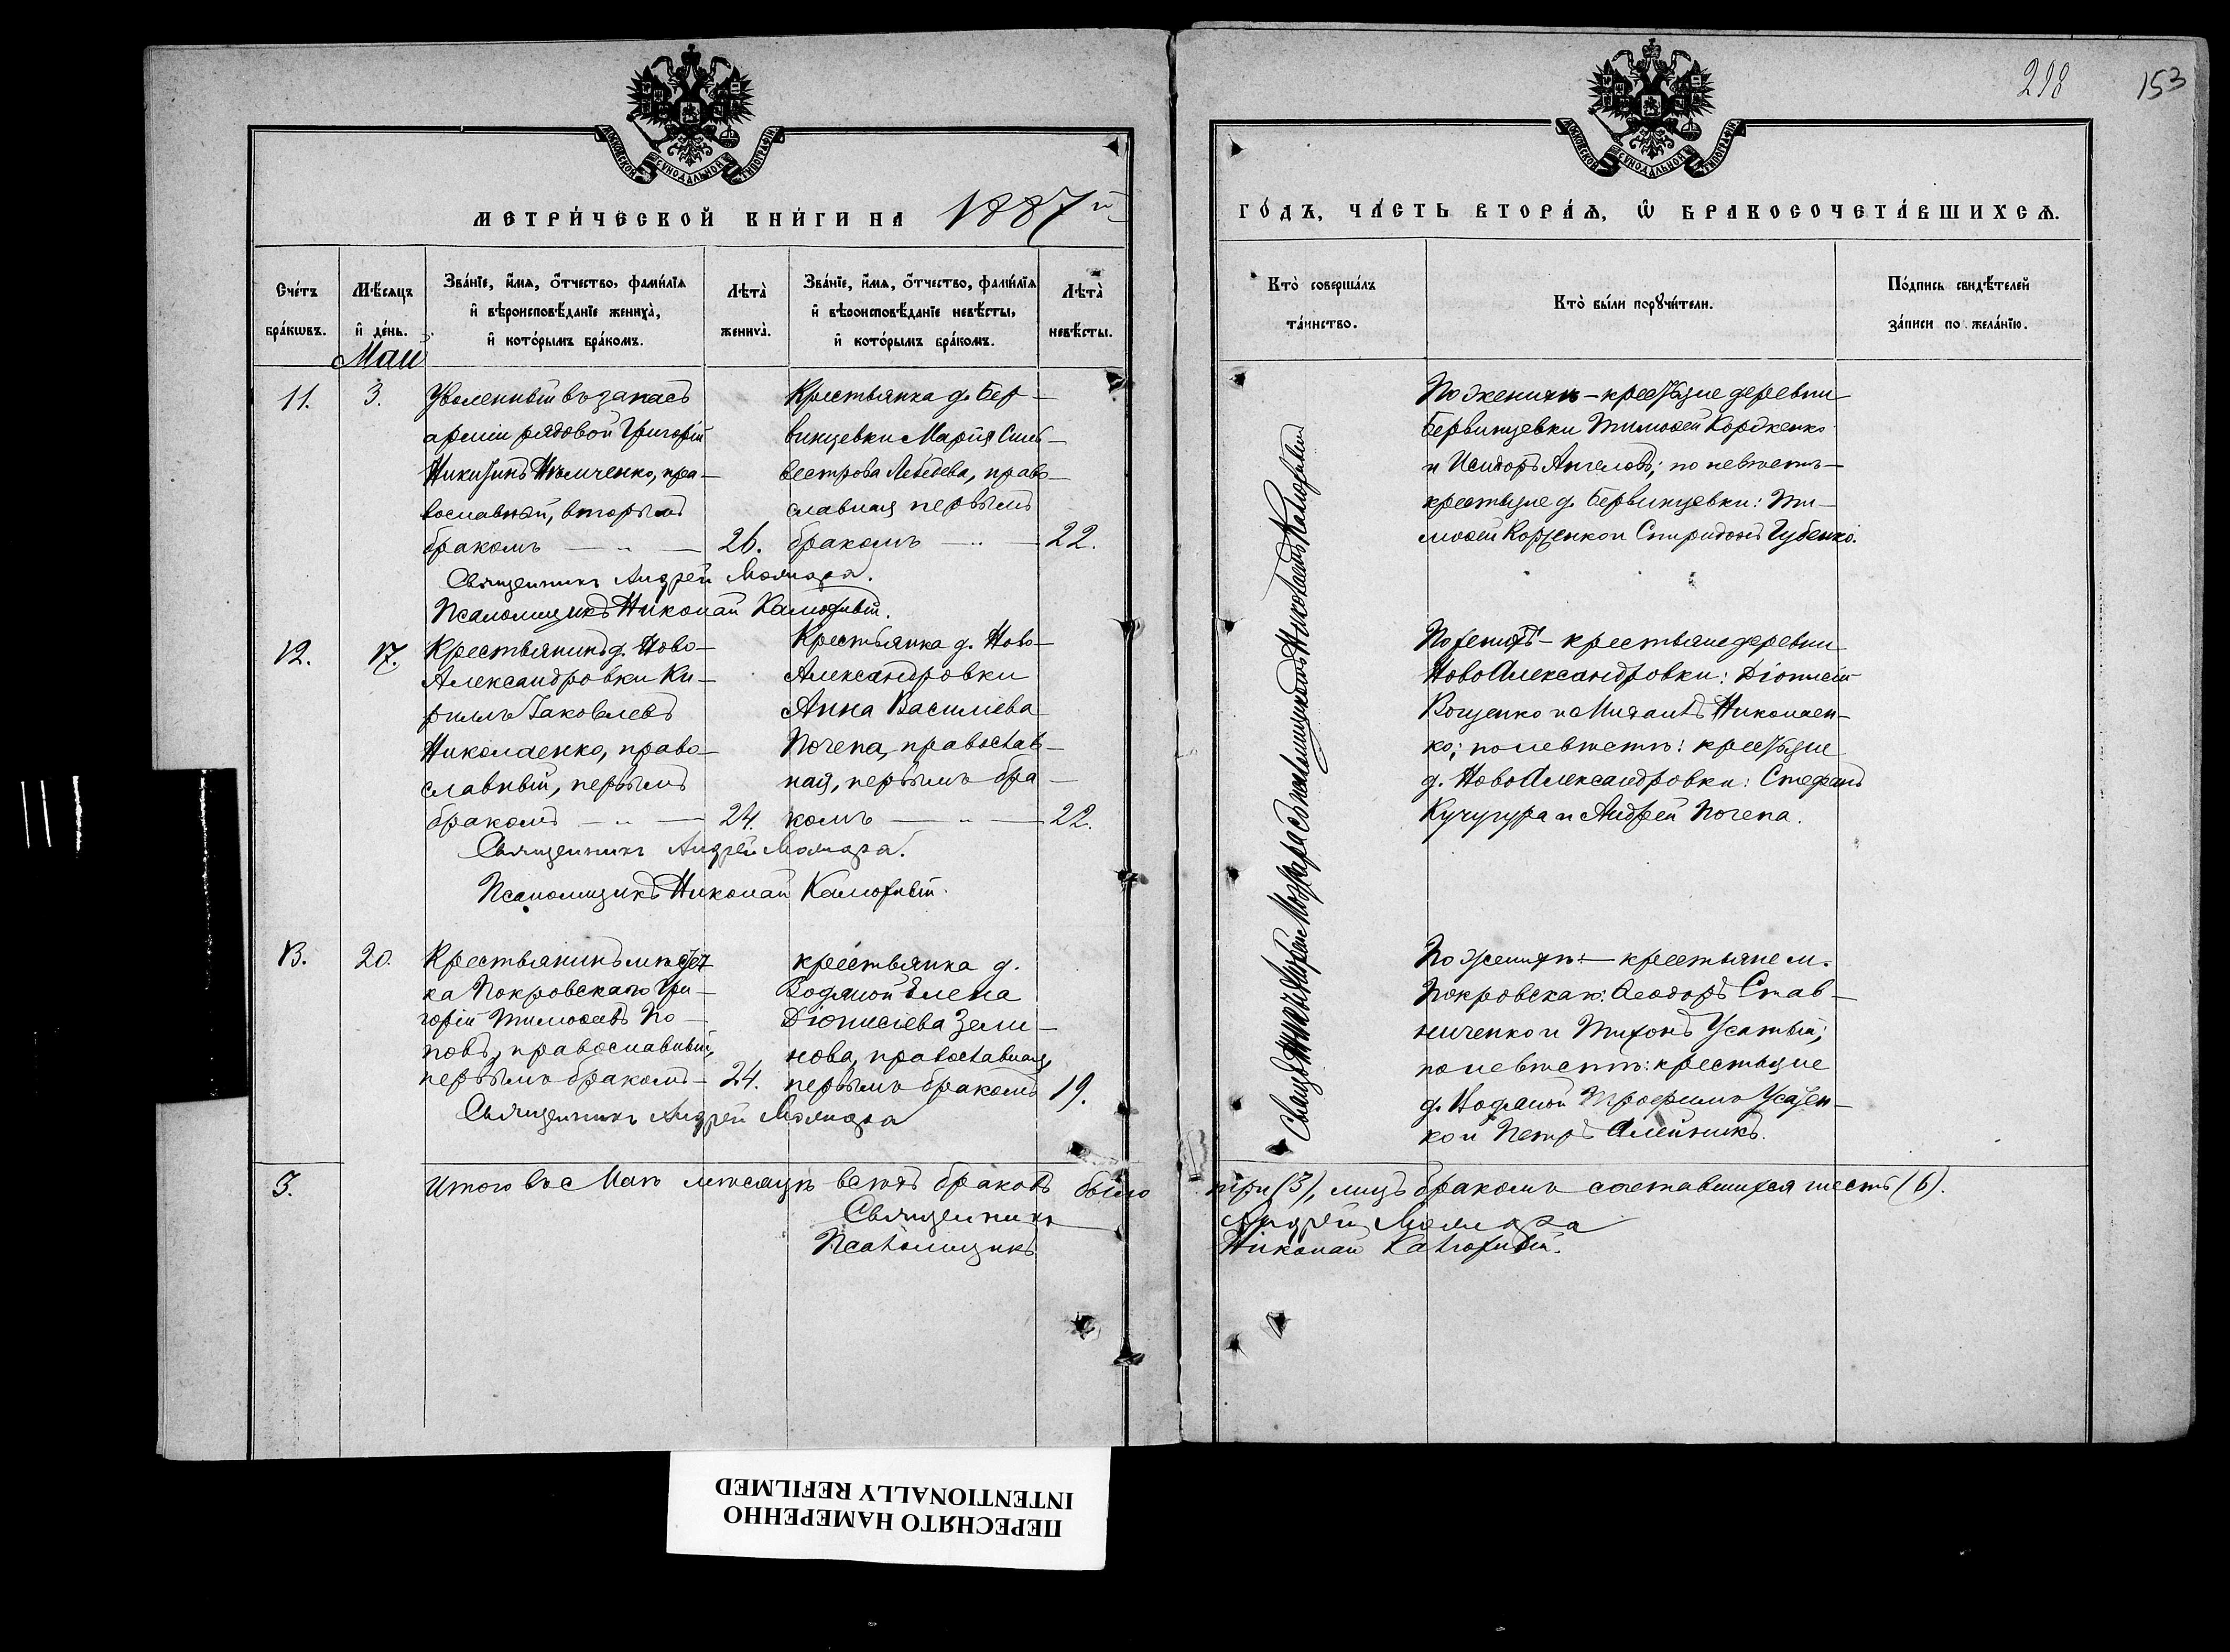 МОСКОВСКОЙ СѴНОДАЛЬНОЙ ТИПОГРАФІИ
МЕТРИ́ЧЕСКОЙ КНИ́ГИ НА 1887й
Сче́тъ бра́кωвъ.
Мѣ́сяцъ и де́нь.
Зва́нїе, и́мя, о́тчество, фами́лїя
и вѣроисповѣ́данїе жениха̀,
и кото́рымъ бра́комъ.
Лѣта̀ жениха̀.
Зва́нїе, и́мя, о́тчество, фами́лїя
и вѣроисповѣ́данїе невѣ́сты,
и кото́рымъ бра́комъ.
Лѣта̀ невѣ́сты.
Май
11.
3.
Уволенный въ запасъ
арміи рядовой Григорій
Никитинъ, пра-
вославный, вторымъ
бракомъ — „ — 26.
Крестьянка д. Бер-
винцевки Марія Силь-
вестрова Лебедева, право-
славная первымъ
бракомъ — „ — 22.
Священникъ Андрей
Псаломщикъ Николай Калюжный.
12.
17.
Крестьянинъ д. Ново-
Александровки Ки-
риллъ Іаковлевъ
Николаенко, право-
славный, первымъ
бракомъ — „ — 24.
Крестьянка д. Ново-
Александровки
Анна Василіева
Почепа, православ-
ная, первымъ бра-
комъ — „ — 22.
Священникъ Андрей
Псаломщикъ Николай Калюжный.
13.
20.
Крестьянинъ мѣстеч
ка Покровскаго Гри-
горій Тимоѳеевъ По-
повъ, православный,
первымъ бракомъ — 24.
крестьянка д.
Водяной Елена
Діонисіева Зели-
нова, православная,
первымъ бракомъ 19.
Священникъ Андрей
3.
Итого въ Маѣ мѣсяцѣ всѣхъ браковъ было
Священникъ
Псаломщикъ
298 153
МОСКОВСКОЙ СѴНОДАЛЬНОЙ ТИПОГРАФІИ
ГО́ДЪ, ЧА́СТЬ ВТОРА́Я, Ѡ БРАКОСОЧЕТА́ВШИХСЯ.
Кто̀ соверша́лъ та́инство.
Кто̀ бы́ли порꙋчи́тели.
По́дпись свидѣ́телей за́писи по жела́нїю.
Андрей съ псаломщикомъ Николаемъ Калюжнымъ
По женихѣ — крестьяне деревни
Бервинцевки Тимоѳей Корженко
и Исидоръ Ангеловъ; по невѣстѣ —
крестьяне д. Бервинцевки: Ти-
моѳей Корженко и Спиридонъ Губенко.
По женихѣ — крестьяне деревни
НовоАлександровки: Діонисій
и Михаилъ Николаен-
ко; по невѣстѣ: крестьяне
д. НовоАлександровки: Стефанъ
Кучугура и Андрей Почепа.
По женихѣ — крестьяне м.
Покровскаго: Ѳеодоръ Став-
ниченко и Тихонъ Усатый;
по невѣстѣ: крестьяне
д. Водяной Трофимъ Усатен-
ко и Петръ Алейникъ.
три (3), лицъ бракомъ сочетавшихся шесть (6).
Андрей
Николай Калюжный.
ПЕРЕСНЯТО НАМЕРЕННО
INTENTIONALLY REFILMED